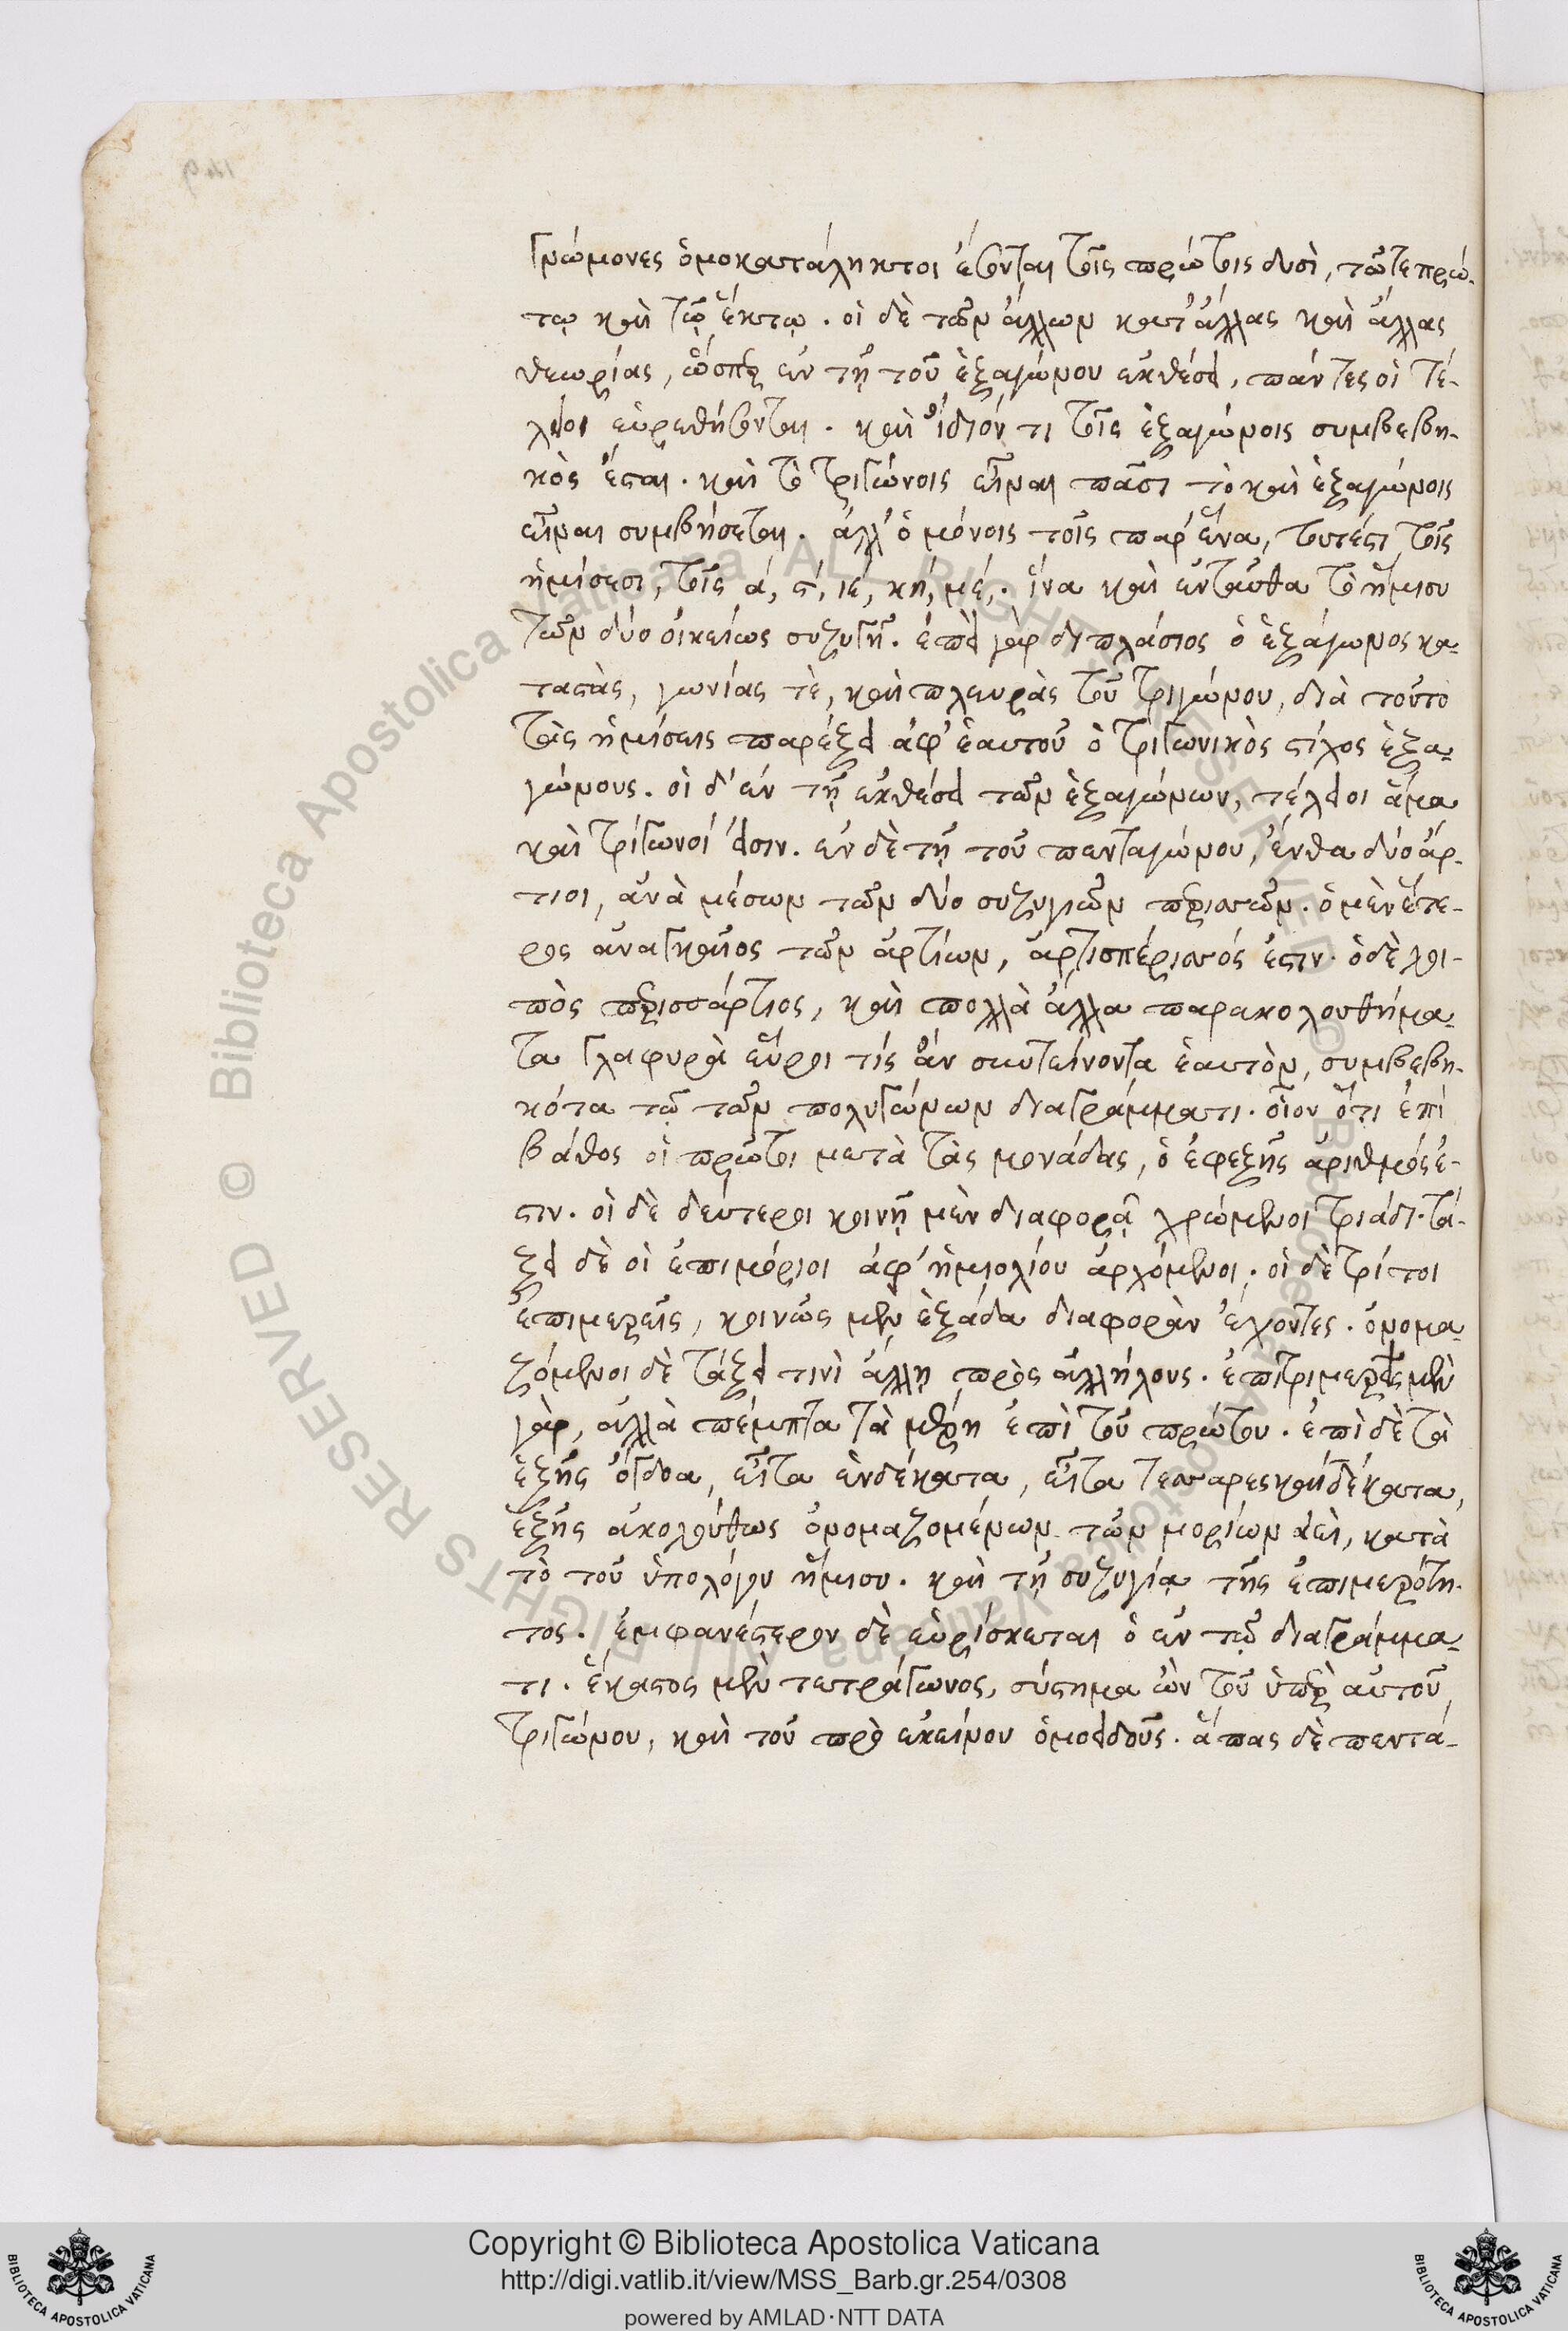 γνώμονες ὁμοκατάληκτοι ἔσονται τοῖς πρώτοις δυσὶ, τῶτε πρώ-
τῳ καὶ τῷ ἕκτῳ. οἱ δὲ τῶν ἄλλων κατ' ἄλλας καὶ ἄλλας
θεωρίας, ὥσπερ ἐν τῇ τοῦ ἑξαγώνου ἐκθέσει, πάντες οἱ τέ-
λειοι εὑρεθήσονται. καὶ ἴδιόν τι τοῖς ἑξαγώνοις συμβεβη-
κὸς ἔσται. καὶ τὸ τριγώνοις εἶναι πᾶσι τὸ καὶ ἑξαγώνοις
εἶναι συμβήσεται. ἀλλ' ὁ μόνοις τοῖς παρ' ἕνα, τουτέστι τοῖς
ἡμίσεσι, τοῖς ά, ϛ́, ιέ, κή, μέ,. ἵνα καὶ ἐνταῦθα τὸ ἥμισυ
τῶν δύο οἰκείως συζυγῇ. ἐπεὶ γὰρ διπλάσιος ὁ ἑξάγωνος κα-
ταστὰς, γωνίας τὲ, καὶ πλευρὰς τοῦ τριγώνου, διὰ τοῦτο
τὰς ἡμίσεις παρέξει ἀφ' ἑαυτοῦ ὁ τριγωνικὸς στίχος ἑξα-
γώνους. οἱ δ' ἐν τῇ ἐκθέσει τῶν ἑξαγώνων, τέλειοι ἅμα
καὶ τρίγωνοί εἰσιν. ἐν δὲ τῇ τοῦ πενταγώνου, ἔνθα δύο ἄρ-
τιοι, ἀνὰ μέσων τῶν δύο συζυγιῶν περισσῶν. ὁ μὲν ἕτε-
ρος ἀναγκαῖος τῶν ἀρτίων, ἀρτιοπέρισσός ἐστιν. ὁ δὲ λοι-
πὸς περισσάρτιος, καὶ πολλὰ ἄλλα παρακολουθήμα-
τα γλαφυρὰ εὕροι τίς ἂν συντείνοντα ἑαυτὸν, συμβεβη-
κότα τῷ τῶν πολυγώνων διαγράμματι. οἷον ὅτι ἐπὶ
βάθος οἱ πρῶτοι μετὰ τὰς μονάδας, ὁ ἐφεξῆς ἀριθμός ἐ-
στιν. οἱ δὲ δεύτεροι κοινῇ μὲν διαφορᾷ χρώμενοι τριάδι. τά-
ξει δὲ οἱ ἐπιμόριοι ἀφ' ἡμιολίου ἀρχόμενοι. οἱ δὲ τρίτοι
ἐπιμερεῖς, κοινῶς μὲν ἑξάδα διαφορὰν ἔχοντες. ὀνομα-
ζόμενοι δὲ τάξει τινὶ ἄλλῃ πρὸς ἀλλήλους. ἐπιτριμερεῖς μὲν
γὰρ, ἀλλὰ πέμπτα τὰ μέρη ἐπὶ τοῦ πρώτου. ἐπὶ δὲ τὰ
ἑξῆς ὄγδοα, εἶτα ἑνδέκατα, εἶτα τεσσαρεσκαιδέκατα,
ἑξῆς ἀκολούθως ὀνομαζομένων τῶν μορίων ἀεὶ, κατὰ
τὸ τοῦ ὑπολόγου ἥμισυ. καὶ τῇ συζυγίᾳ τῆς ἐπιμερότη-
τος. ἐμφανέστερον δὲ εὑρίσκεται ὁ ἐν τῷ διαγράμμα-
τι. ἕκαστος μὲν τετράγωνος, σύστημα ὢν τοῦ ὑπὲρ αὐτοῦ
τριγώνου, καὶ τοῦ πρὸ ἐκείνου ὁμοειδοῦς. ἅπας δὲ πεντά-
Copyright © Biblioteca Apostolica Vaticana
http://digi.vatlib.it/view/MSS_Barb.gr.254/0308
powered by AMLAD·NTT DATA